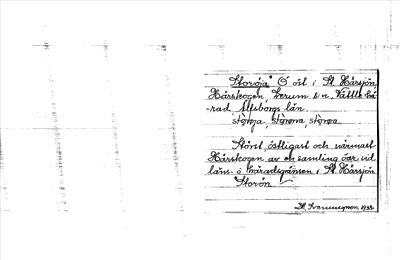 Storöja" Ö öst i St. Härsjön,
Härskogen, Lerum sn, Vättle hä-
-rad Älfsborgs län.
Störst, östligast och närmast
Härskogen av en samling öar vid
läns- o häradsgränsen i St Härsjön
"Storön"
1933